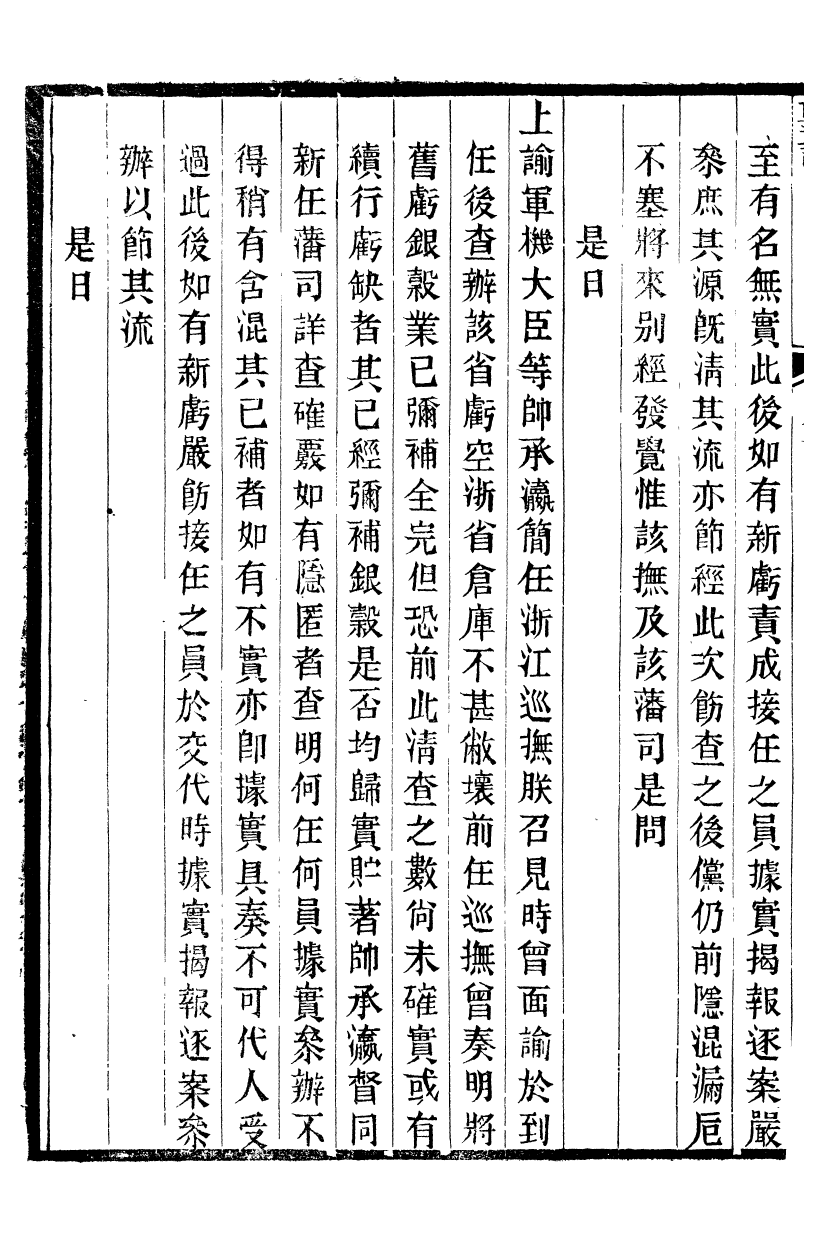 至有名無實此後如有新虧責成接任之員據實揭報逐案嚴
叅庶其源旣淸其流亦節經此次飭查之後儻仍前隱混漏巵
不塞將來別經發覺惟該撫及該藩司是問
是日
上諭軍機大臣等帥承瀛簡任浙江巡撫朕召見時曾面諭於到
任後查辦該省虧空浙省倉庫不甚敝壞前任巡撫曾奏明將
舊虧銀穀業已彌補全完但恐前此淸查之數尙未確實或有
續行虧缺者其已經彌補銀穀是否均歸實貯著帥承瀛督同
新任藩司詳查確覈如有隱匿者查明何任何員據實叅辦不
得稍有含混其已補者如有不實亦卽據實具奏不可代人受
過此後如有新虧嚴飭接任之員於交代時據實揭報逐案叅
辦以節其流
是日